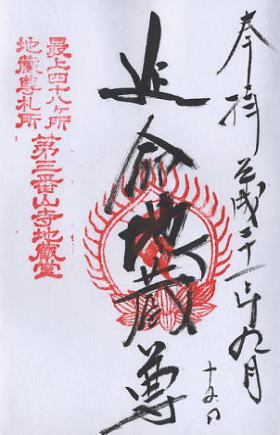 奉拝 平成二十一年九月
十五日
延命地蔵尊
最上四十八ヶ所
地蔵尊札所
第三番山寺地蔵堂